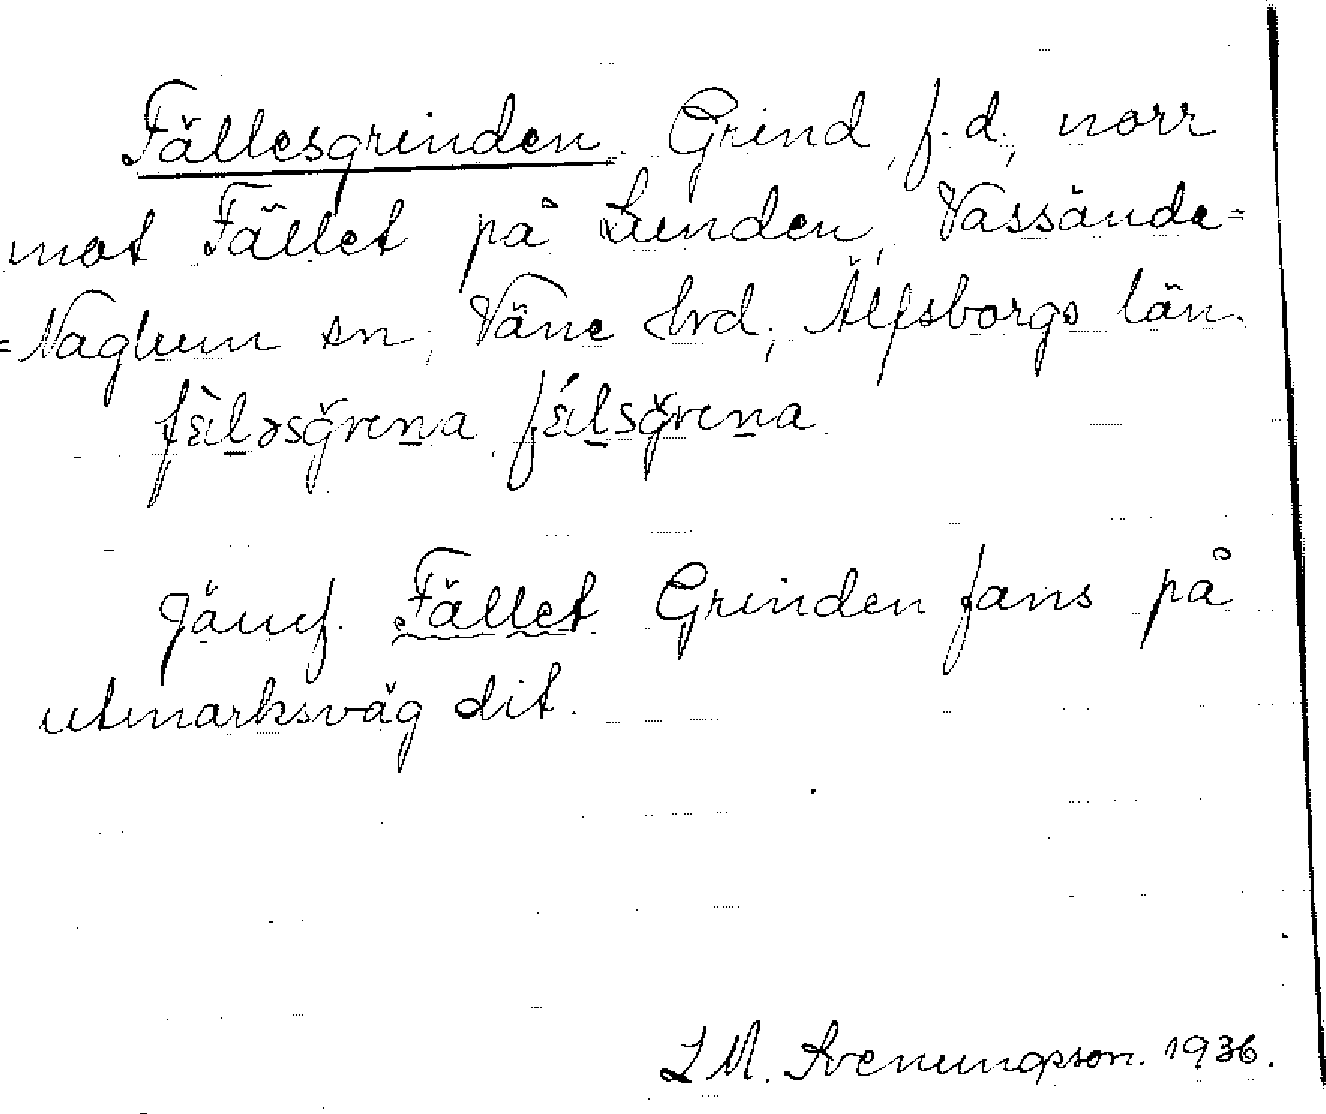 Fällesgrinden. Grind, f. d., norr
mot Fället på Lunden, Vassända-
-Naglum sn, Väne hrd, Älfsborgs län.
fä̀ləsğrena, fä́lsğrena
Jämf. Fället Grinden fans på
utmarksväg dit.
L M. Svenungsson. 1936.